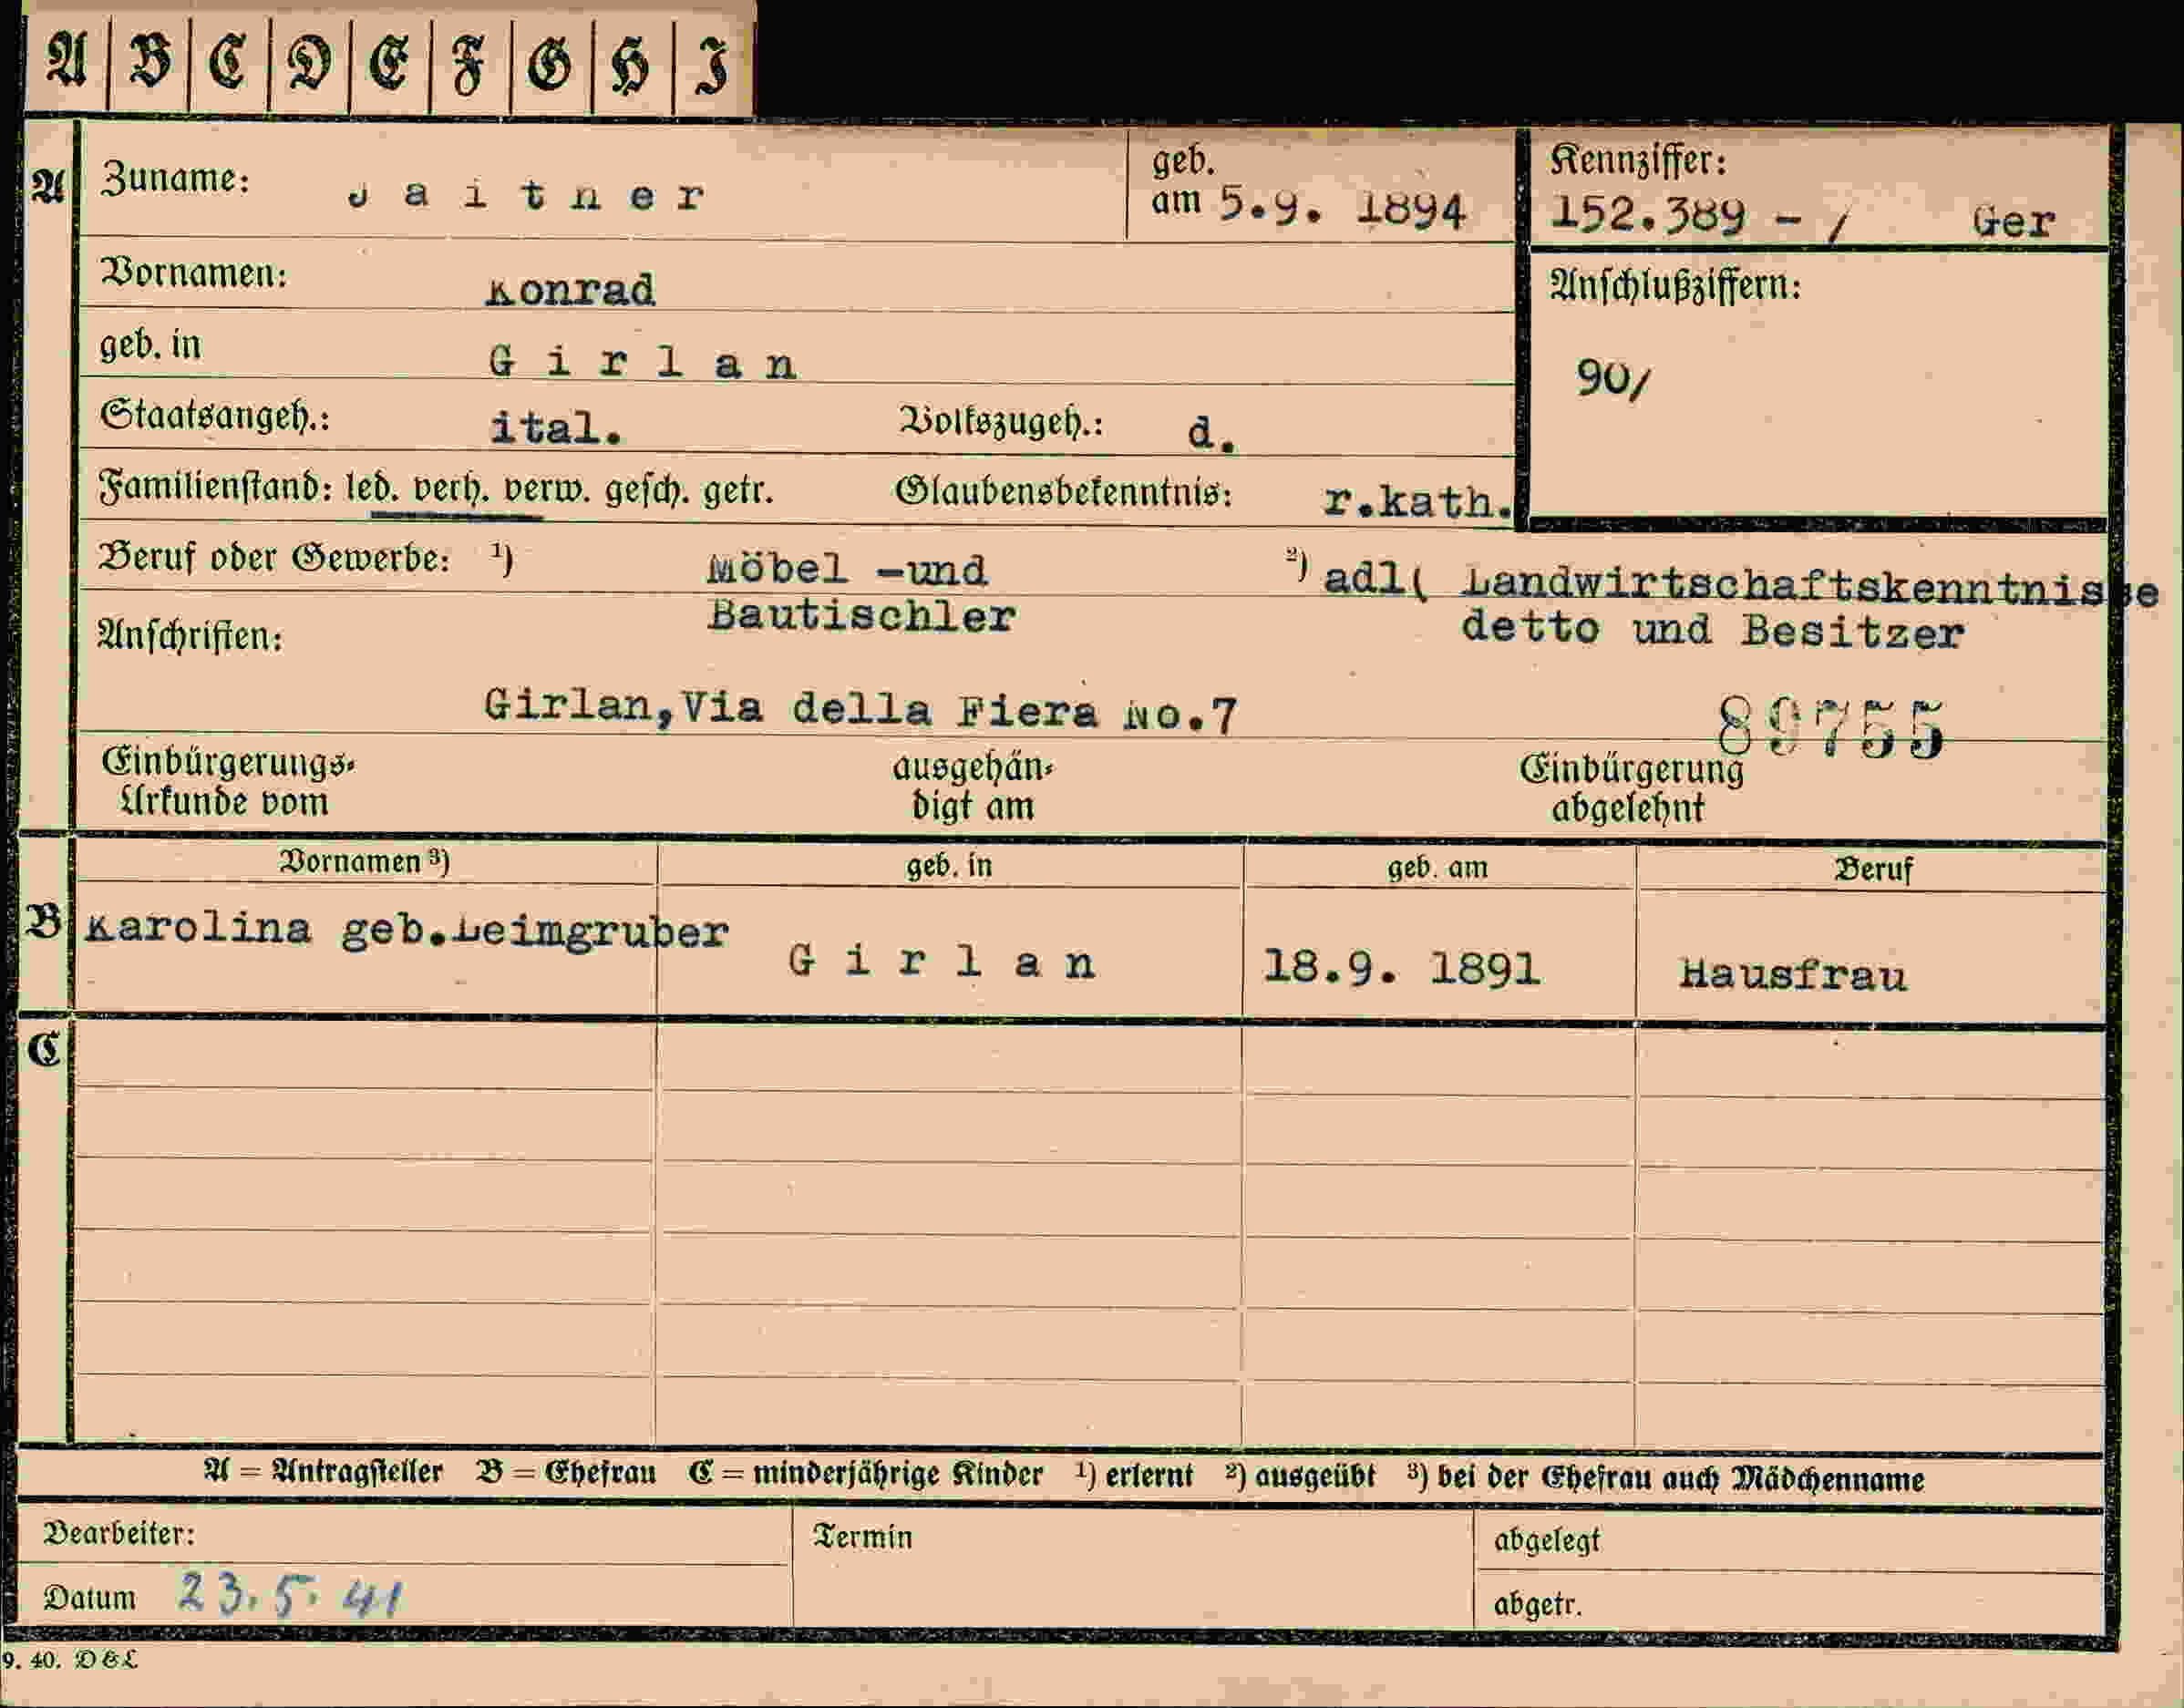 A B C D E F G H I
A Zuname: Jaitner geb. am 5.9. 1894 Kennziffer: 152.389 - / Ger
Vornamen: Konrad Anschlußziffern:
geb. in Girlan 90/
Staatsangeh.: ital. Volkszugeh.: d.
Familienstand: led. verh. verw. gesch. getr. Glaubensbekenntnis: r.kath.
Beruf oder Gewerbe: 1) Möbel -und 2) adl( Landwirtschaftskenntnisse
Bautischler detto und Besitzer
Anschriften:
Girlan,Via della Fiera No.7 89755
Einbürgerungs- ausgehän- Einbürgerung
Urkunde vom digt am abgelehnt
Vornamen 3) geb. in geb. am Beruf
B Karolina geb.Leimgruber Girlan 18.9. 1891 Hausfrau
C
A = Antragsteller B = Ehefrau C = minderjährige Kinder 1) erlernt 2) ausgeübt 3) bei der Ehefrau auch Mädchenname
Bearbeiter: Termin abgelegt
Datum 23.5.41 abgetr.
9. 40. D&L